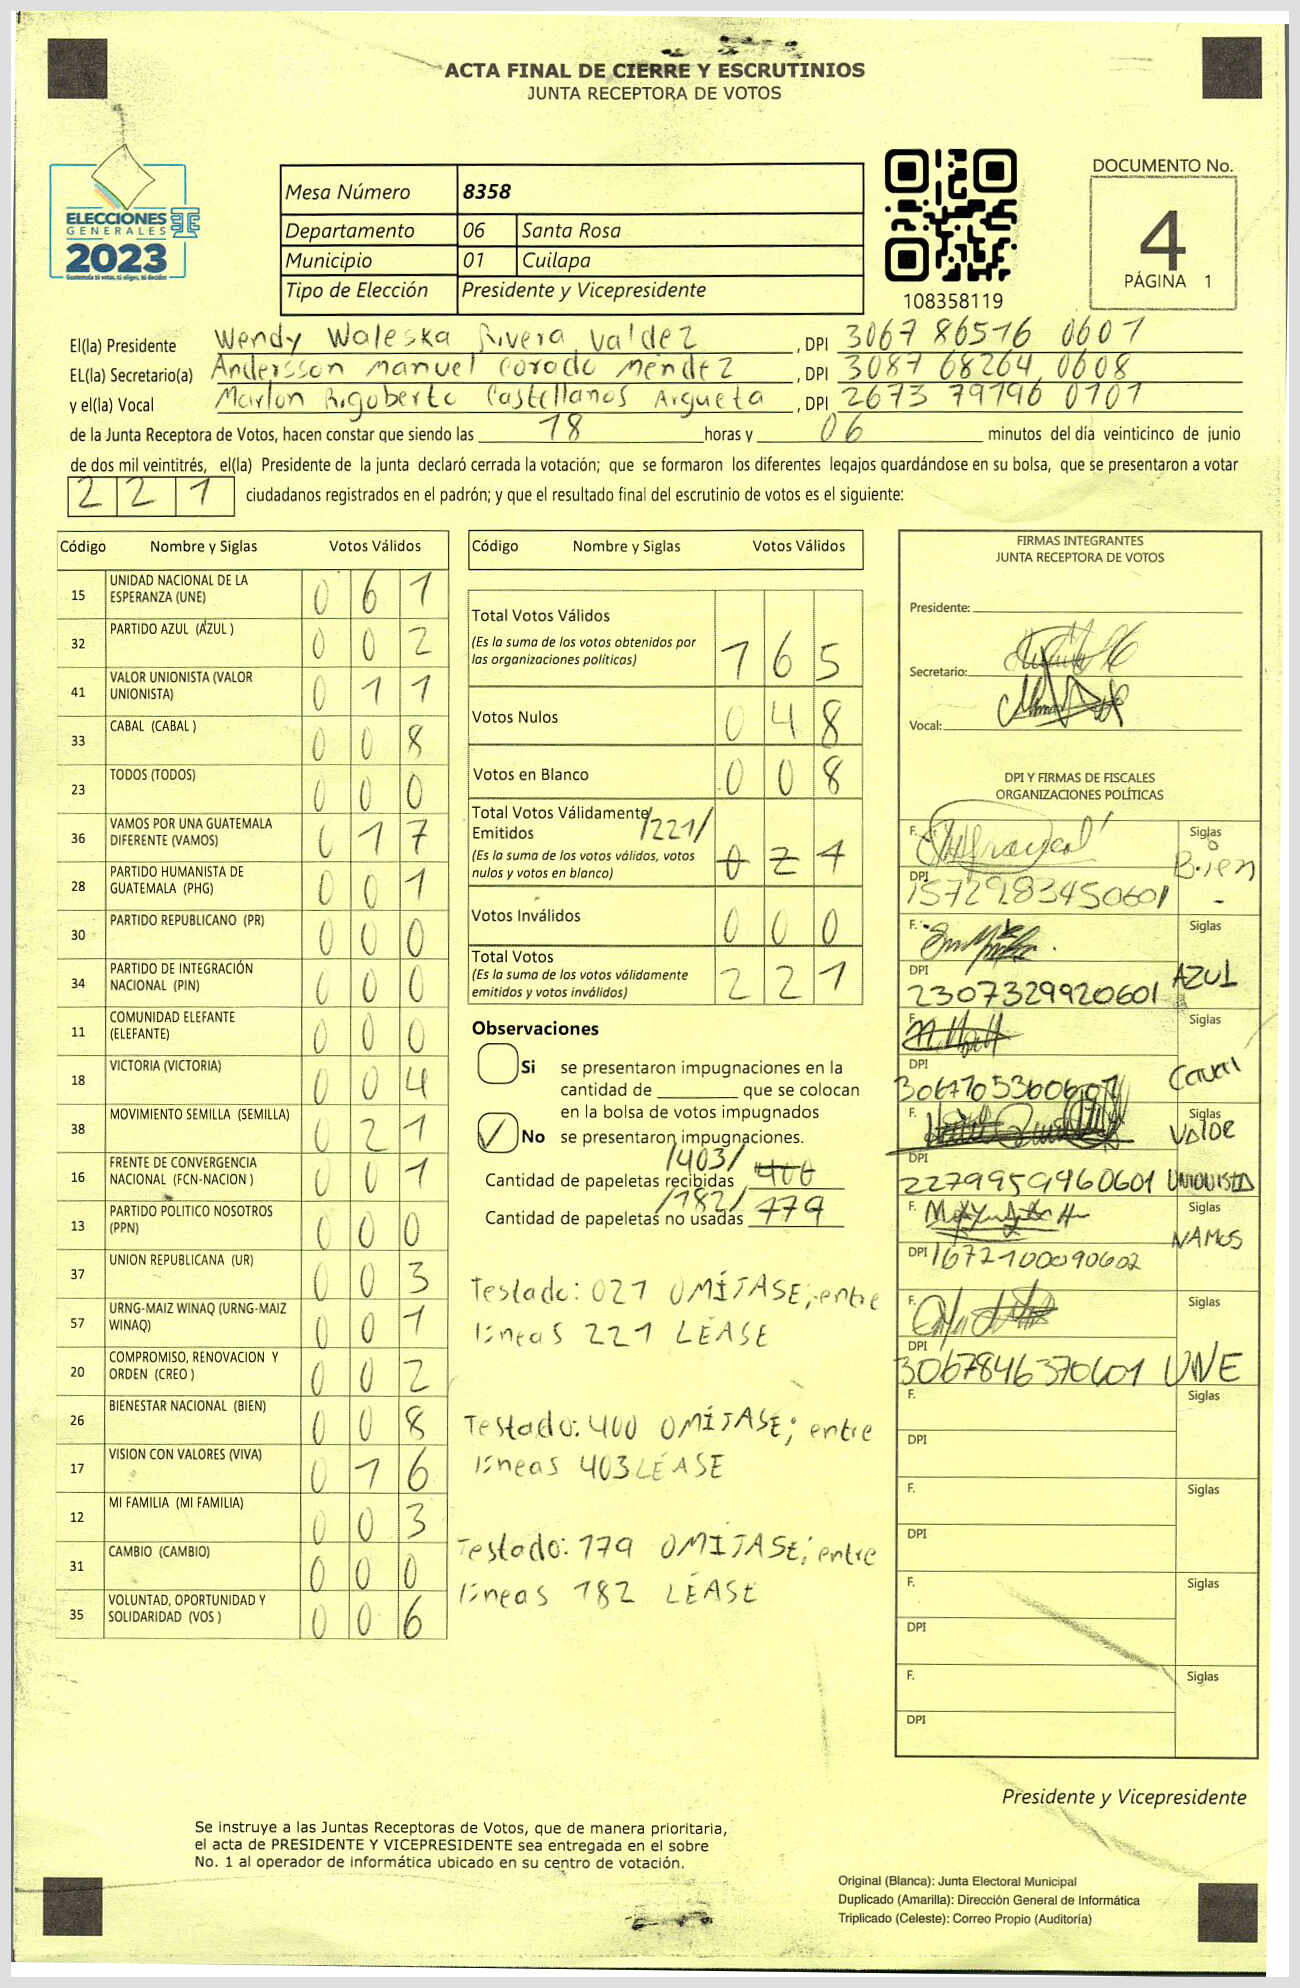 ACTA FINAL DE CIERRE Y ESCRUTINIOS
JUNTA RECEPTORA DE VOTOS
ELECCIONES
GENERALES
2023
Guatemala tú votas, tú eliges, tú decides
Mesa Número 8358
Departamento 06 Santa Rosa
Municipio 01 Cuilapa
Tipo de Elección Presidente y Vicepresidente
108358119
DOCUMENTO No.
4
PÁGINA 1
El(la) Presidente Wendy Waleska Rivera Valdez, DPI 3067 86516 0601
EL(la) Secretario(a) Andersson Manuel Corado Méndez, DPI 3087 68264 0608
y el(la) Vocal Marlon Rigoberto Castellanos Argueta, DPI 2673 79796 0101
de la Junta Receptora de Votos, hacen constar que siendo las 18 horas y 06 minutos del día veinticinco de junio
de dos mil veintitrés, el(la) Presidente de la junta declaró cerrada la votación; que se formaron los diferentes legajos guardándose en su bolsa, que se presentaron a votar
221 ciudadanos registrados en el padrón; y que el resultado final del escrutinio de votos es el siguiente:
Código Nombre y Siglas Votos Válidos
15 UNIDAD NACIONAL DE LA ESPERANZA (UNE) 0 6 1
32 PARTIDO AZUL (AZUL ) 0 0 2
41 VALOR UNIONISTA (VALOR UNIONISTA) 0 1 1
33 CABAL (CABAL ) 0 0 8
23 TODOS (TODOS) 0 0 0
36 VAMOS POR UNA GUATEMALA DIFERENTE (VAMOS) 0 1 7
28 PARTIDO HUMANISTA DE GUATEMALA (PHG) 0 0 1
30 PARTIDO REPUBLICANO (PR) 0 0 0
34 PARTIDO DE INTEGRACIÓN NACIONAL (PIN) 0 0 0
11 COMUNIDAD ELEFANTE (ELEFANTE) 0 0 0
18 VICTORIA (VICTORIA) 0 0 4
38 MOVIMIENTO SEMILLA (SEMILLA) 0 2 1
16 FRENTE DE CONVERGENCIA NACIONAL (FCN-NACION ) 0 0 1
13 PARTIDO POLITICO NOSOTROS (PPN) 0 0 0
37 UNION REPUBLICANA (UR) 0 0 3
57 URNG-MAIZ WINAQ (URNG-MAIZ WINAQ) 0 0 1
20 COMPROMISO, RENOVACION Y ORDEN (CREO ) 0 0 2
26 BIENESTAR NACIONAL (BIEN) 0 0 8
17 VISION CON VALORES (VIVA) 0 1 6
12 MI FAMILIA (MI FAMILIA) 0 0 3
31 CAMBIO (CAMBIO) 0 0 0
35 VOLUNTAD, OPORTUNIDAD Y SOLIDARIDAD (VOS ) 0 0 6
Código Nombre y Siglas Votos Válidos
Total Votos Válidos
(Es la suma de los votos obtenidos por las organizaciones políticas) 1 6 5
Votos Nulos 0 4 8
Votos en Blanco 0 0 8
Total Votos Válidamente Emitidos /221/
(Es la suma de los votos válidos, votos nulos y votos en blanco) 0 2 1
Votos Inválidos 0 0 0
Total Votos
(Es la suma de los votos válidamente emitidos y votos inválidos) 2 2 1
Observaciones
Si se presentaron impugnaciones en la
cantidad de ________ que se colocan
en la bolsa de votos impugnados
✓ No se presentaron impugnaciones.
Cantidad de papeletas recibidas /403/ 400
Cantidad de papeletas no usadas /182/ 179
Testado: 021 OMÍTASE; entre
líneas 221 LÉASE
Testado: 400 OMÍTASE; entre
líneas 403 LÉASE
Testado: 179 OMÍTASE; entre
líneas 182 LÉASE
FIRMAS INTEGRANTES
JUNTA RECEPTORA DE VOTOS
Presidente:
Secretario:
Vocal:
DPI Y FIRMAS DE FISCALES
ORGANIZACIONES POLÍTICAS
F. Siglas Bien
DPI 1572983450601
F. Siglas AZUL
DPI 2307329920601
F. Siglas
DPI 3067705360601
F. Siglas VALOR UNIONISTA
DPI 2279959460601
F. Siglas VAMOS
DPI 1672100090602
F. Siglas UNE
DPI 3067846370601
F. Siglas
DPI
F. Siglas
DPI
F. Siglas
DPI
F. Siglas
DPI
Presidente y Vicepresidente
Se instruye a las Juntas Receptoras de Votos, que de manera prioritaria,
el acta de PRESIDENTE Y VICEPRESIDENTE sea entregada en el sobre
No. 1 al operador de informática ubicado en su centro de votación.
Original (Blanca): Junta Electoral Municipal
Duplicado (Amarilla): Dirección General de Informática
Triplicado (Celeste): Correo Propio (Auditoría)